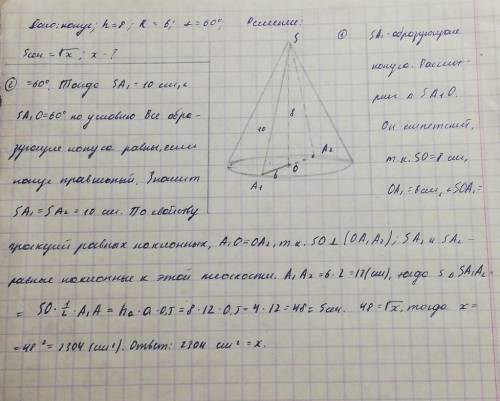 Дано: конус; h=8; R = 6; ∠=60°; Решение:
Sсеч = √x; x - ?
S
8
10
6
O
A₁
A₂
① SA₁ - образующая
конуса. Рассмот-
рим Δ SA₁O.
Он египетский,
т.к. SO = 8 см,
OA₁ = 6 см, ∠SOA₁ =
② = 60°. Тогда SA₁ = 10 см,
SA₁O = 60° по условию Все обра-
зующие конуса равны, если
конус правильный. Значит
SA₁ = SA₂ = 10 см. По свойству
проекций равных наклонных, A₁O = OA₂, т.к. SO ⊥ (OA₁A₂); SA₁ и SA₂ -
равные наклонные к этой плоскости. A₁A₂ = 6 · 2 = 12 (см), тогда S Δ SA₁A₂ =
= SO · 1/2 · A₁A = hₐ · a · 0,5 = 8 · 12 · 0,5 = 4 · 12 = 48 = Sсеч. 48 = √x, тогда x =
= 48² = 2304 (см²). Ответ: 2304 см² = x.